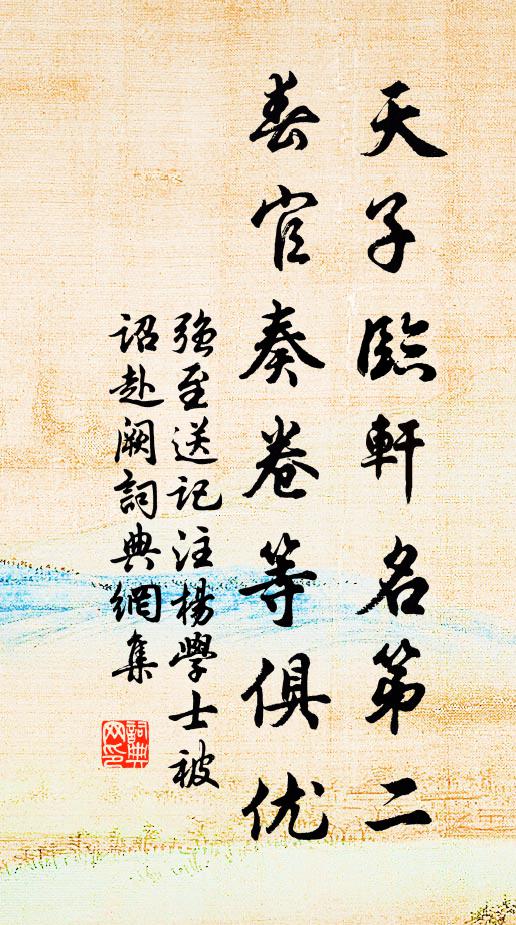 天子臨軒名第二
春官奏卷等俱优
強至送记注楊學士被
诏赴阙詞典網集
詞典网印